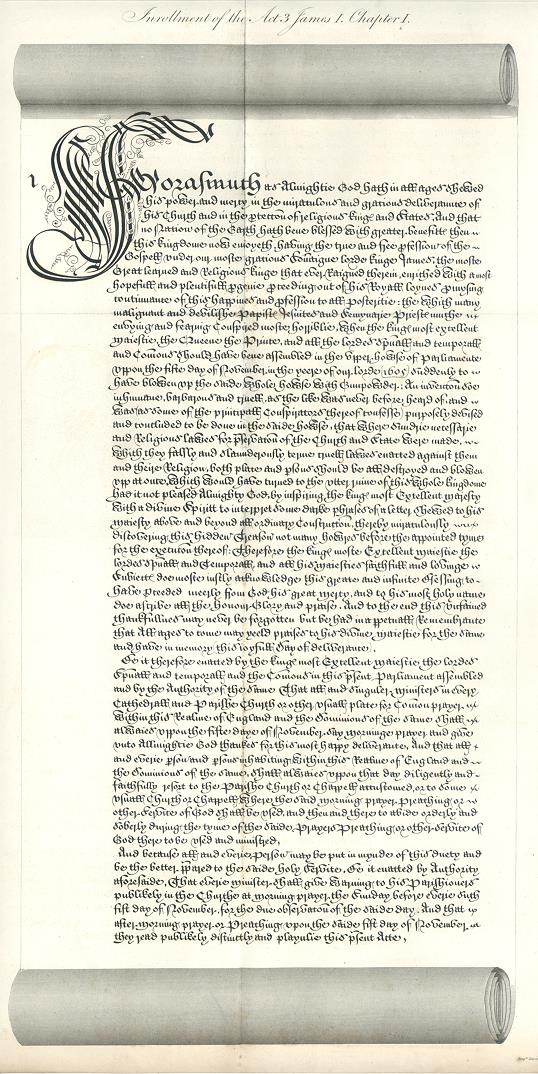 Inrollment of the Act 3 James I. Chapter I.
Forasmuch as Almightie God hath in all ages shewed
his power and mercy in the miraculous and gratious deliverance of
his Church and in the ptection of religious kings and States, And that
no Nation of the Earth hath bene blessed with greater benefitt then
this kingdome now enioyeth, having the true and free pfession of the
Gospell under our moste gratious Soveraigne lorde kinge James, the moste
Great Learned and Religious kinge that ever Raigned therein, enriched with a most
hopefull and plentifull pgenie pceeding out of his Royall loynes pmysing
continuance of this happines and pfession to all Posteritie: the which many
malignant and devilishe Papists Jesuites and Seminarie Priests much
envying and fearing Conspired moste horriblie, when the kings most excellent
maiestie, the Queene the Prince, and all the lordes spuall and temporall
and Comons should have bene assembled in the upper howse of Parliamente
uppon the fifte day of November in the yeere of our lorde (1605) suddenly to
have blowen up the saide whole howse with Gunpowder: An invention soe
inhumane, barbarous and cruell, as the like was never before heard of, and
was as some of the principall Conspirators thereof confesse purposely devised
and concluded to be done in the saide howse, that where sundrie necessarie
and Religious lawes for pservation of the Church and State were made,
which they falsly and slanderously terme cruell lawes enacted against them
and their Religion, both place and psons should be all destroyed and blowen
upp at once, which would have turned to the utter ruine of this whole kingdome
had it not pleased Almighty God, by inspiring the kings most Excellent maiesty
with a divine spirit to interpret some darke phrases of a letter shewed to his
maiesty above and beyond all ordinary Construction, thereby miraculously
discovering this hidden Treason not many howres before the appointed tyme
for the execution thereof: Therefore the kings moste Excellent maiestie the
lordes spuall and Temporall, and all his maiesties faithfull and loving
Subiects doe moste iustly acknowledge this great and infinite blessing to
have pceeded meerly from God his great mercy, and to his most holy name
doe ascribe all the honour Glory and praise. And to the end this unfained
thankfullnes may never be forgotten but be had in a ppetuall Remembrance
that All ages to come may yeeld praises to his divine maiestie for the same
and have in memory this ioyfull day of deliverance.
Be it therefore enacted by the kings most Excellent maiestie, the lordes
spuall and temporall and the Comons in this psent Parliament assembled
and by the Authority of the same That all and singuler ministers in every
Cathedrall and Parishe Church or other usuall place for Comon prayer
within this Realme of England and the dominions of the same shall
alwaies uppon the fifte daye of November say morninge prayer and give
unto Allmightie God thankes for this most happy deliverance, And that all
and everie pson and psons inhabiting within this Realme of England and
the dominions of the same, shall alwaies uppon that day diligently and
faithfully resort to the Parishe Church or Chappell accustomed, or to some
usuall Church or Chappell where the said morning prayer, preaching or
other service of God shall be used, and then and there to abide orderly and
soberly during the tyme of the saide, Prayers Preaching or other service of
God there to be used and ministred,
And because all and everie Person may be put in mynde of this duety and
be the better ppared to the saide holy service, Be it enacted by Authority
aforesaide, That everie minister shall give warning to his Parishioners
publikely in the Churche at morning prayer, the Sunday before everie such
fift day of November, for the due observation of the saide day. And that
after morning prayer or Preaching uppon the saide fift day of November
they read publikely distinctly and playnlie this psent Acte,